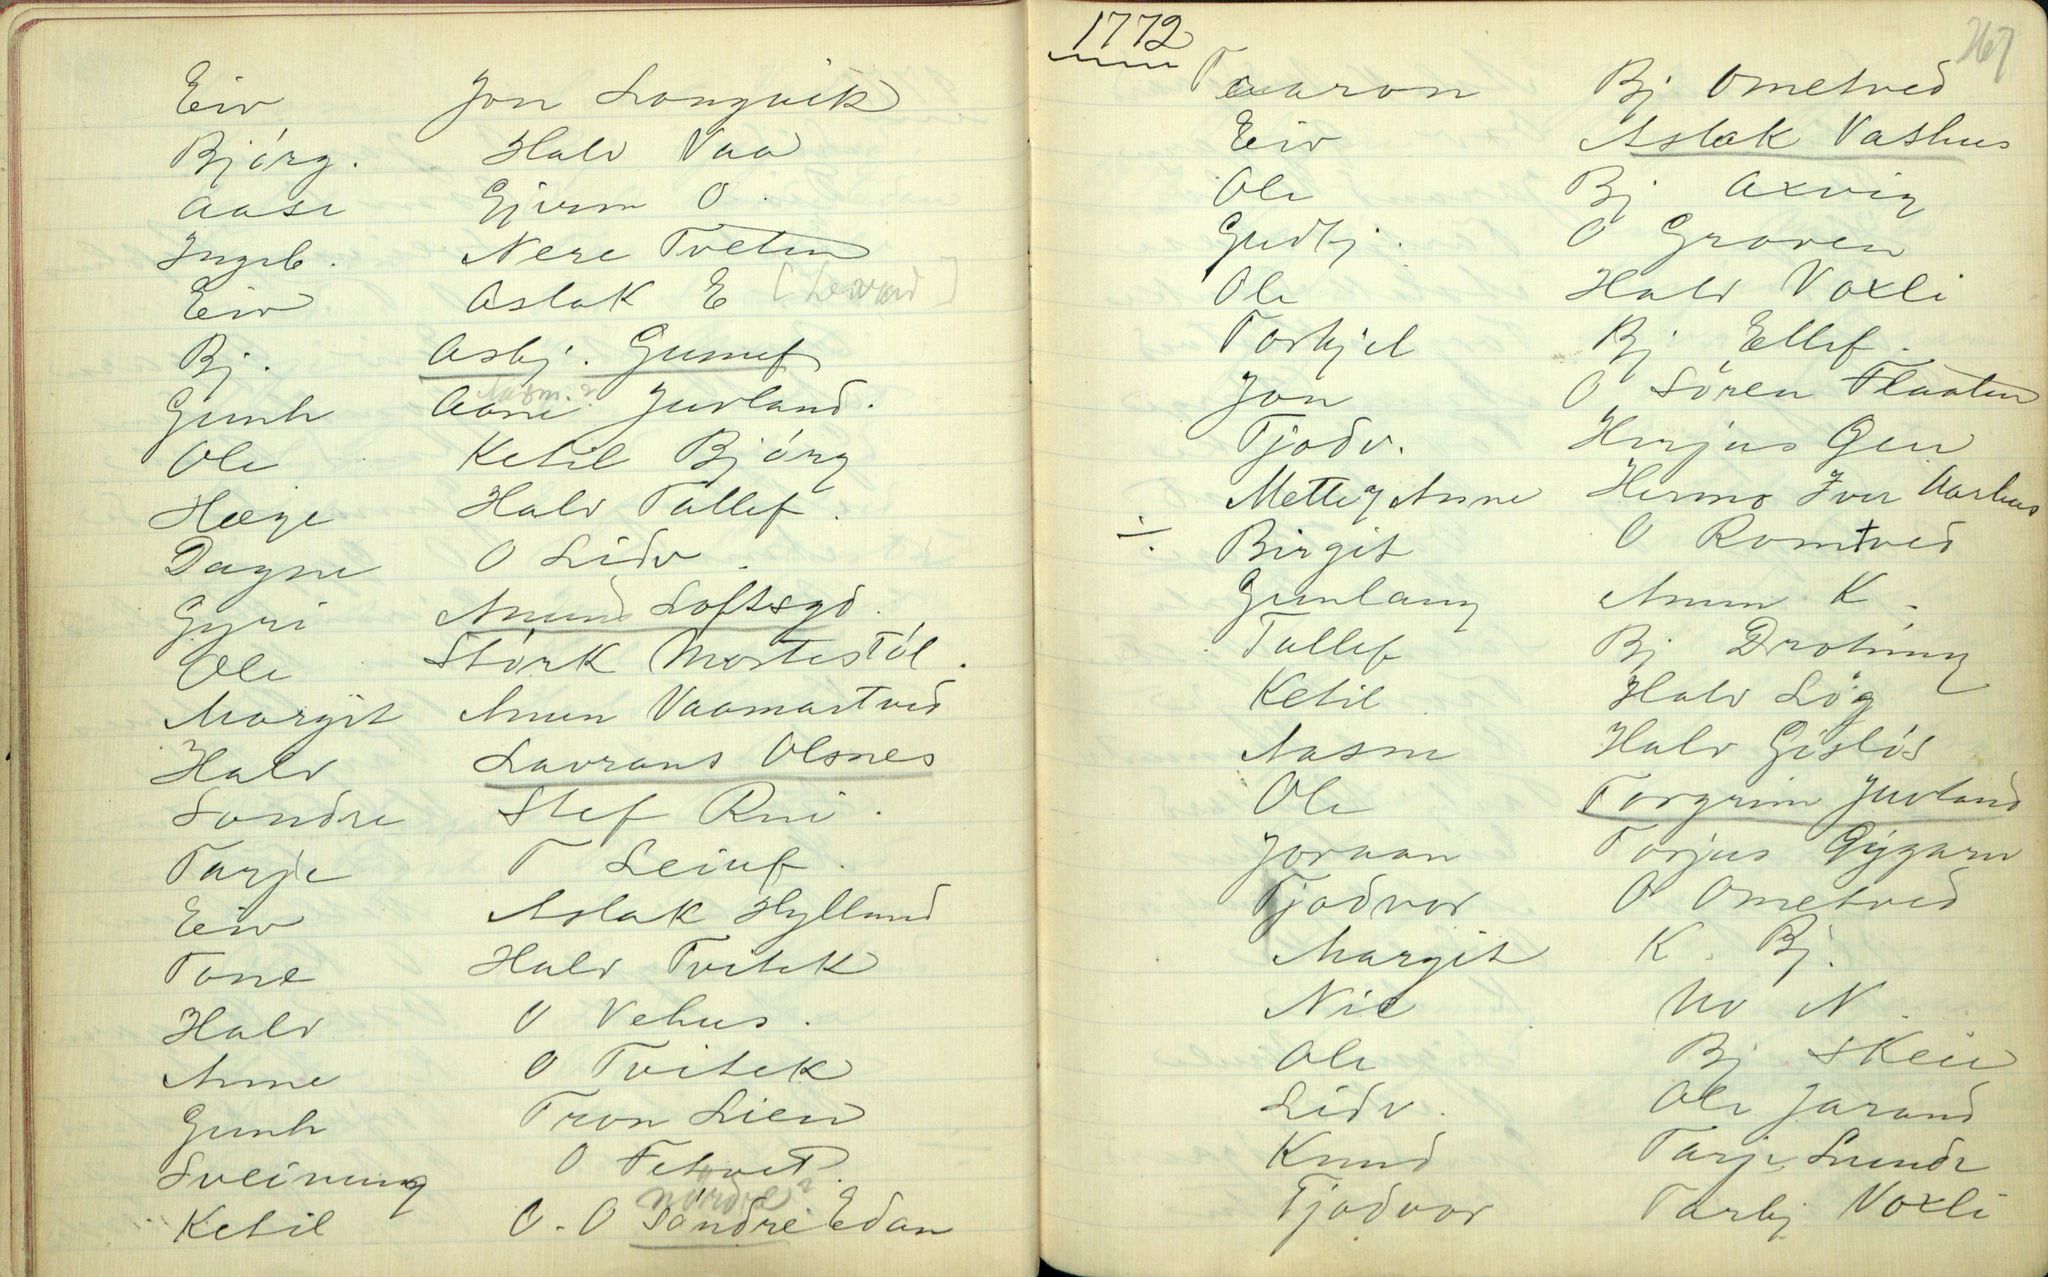 Eiv Jon Longvik
Bjórg. Halv Vaa
Aase Gjerm O.
Ingeb. Nere Tveten
Eiv Aslak E
Bj. Asbj. Gunuf
Aasm.?
Gunh Aane Juvland.
Ole Ketil Bjórg
Hæge Halv Tallef.
Dagne O Lidv.
Gyri Anund Loftsgd.
Ole Stórk Mostestól.
Margit Anun Vaamartved
Halv Lavrans Olsnes
Sondre Stef Rui.
Tarje T Leiuf.
Eiv Aslak Hylland
Tone Halv Tvitek
Halv O Vehus.
Anne O Tvitek
Gunh Tron Lien
Sveinung O Fetveit.
nórdre?
Ketil O. O Sóndre Edan
1772
267
Taaron Bj Ometved
Eiv Aslak Vashus
Ole Bj Axvig
Gudbj. O Groven
Ole Halv Voxli
Torkjel Bj Ellef.
Jon O Sören Flaaten
Tjodv. Herjus Gen
Mette Anne Hermo Iver Aarhus
÷ Birgit O Romtved
Gunlaug Anun K.
Tallef Bj Drotning
Ketil Halv Lög
Aasne Halv Gislós
Ole Torgrim Juvland
Joraan Torjus Gýgarn
Tjodvor O Ometved
Margit K. Bj.
Nil No N.
Ole Bj Skeie
Lidv. Ole Jarand
Knud Tarje Lunde
Tjodvor Tarbj Voxli